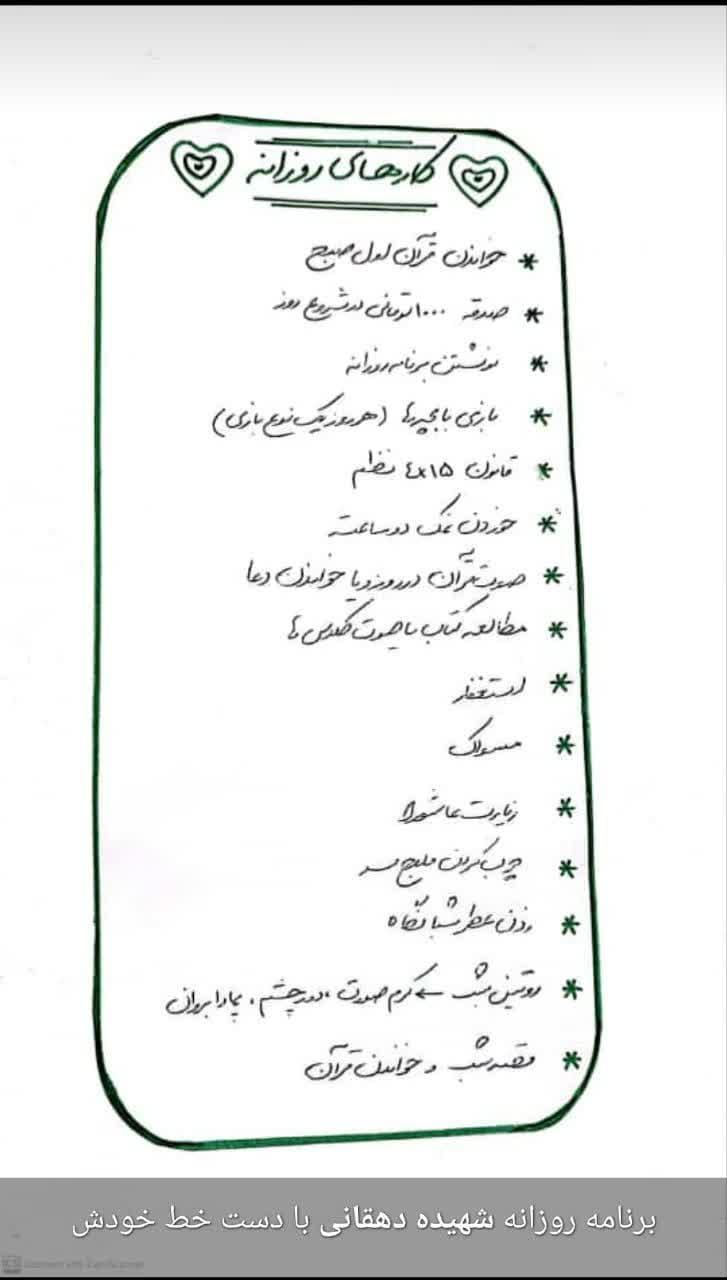 کارهای روزانه
* خواندن قرآن اول صبح
* صدقه ۱۰۰۰ تومانی در شروع روز
* نوشتن برنامه روزانه
* بازی با بچه‌ها (هر روز یک نوع بازی)
* قانون ۴x۱۵ نظم
* خوردن نمک دو ساعته
* صوت قرآن در روز و یا خواندن دعا
* مطالعه کتاب یا صوت کلاس ها
* استغفار
* مسواک
* زیارت عاشورا
* چرب کردن ملاج سر
* زدن عطر شبانگاه
* روتین شب ← کرم صورت، دور چشم،
* قصه شب و خواندن قرآن
برنامه روزانه شهیده دهقانی با دست خط خودش